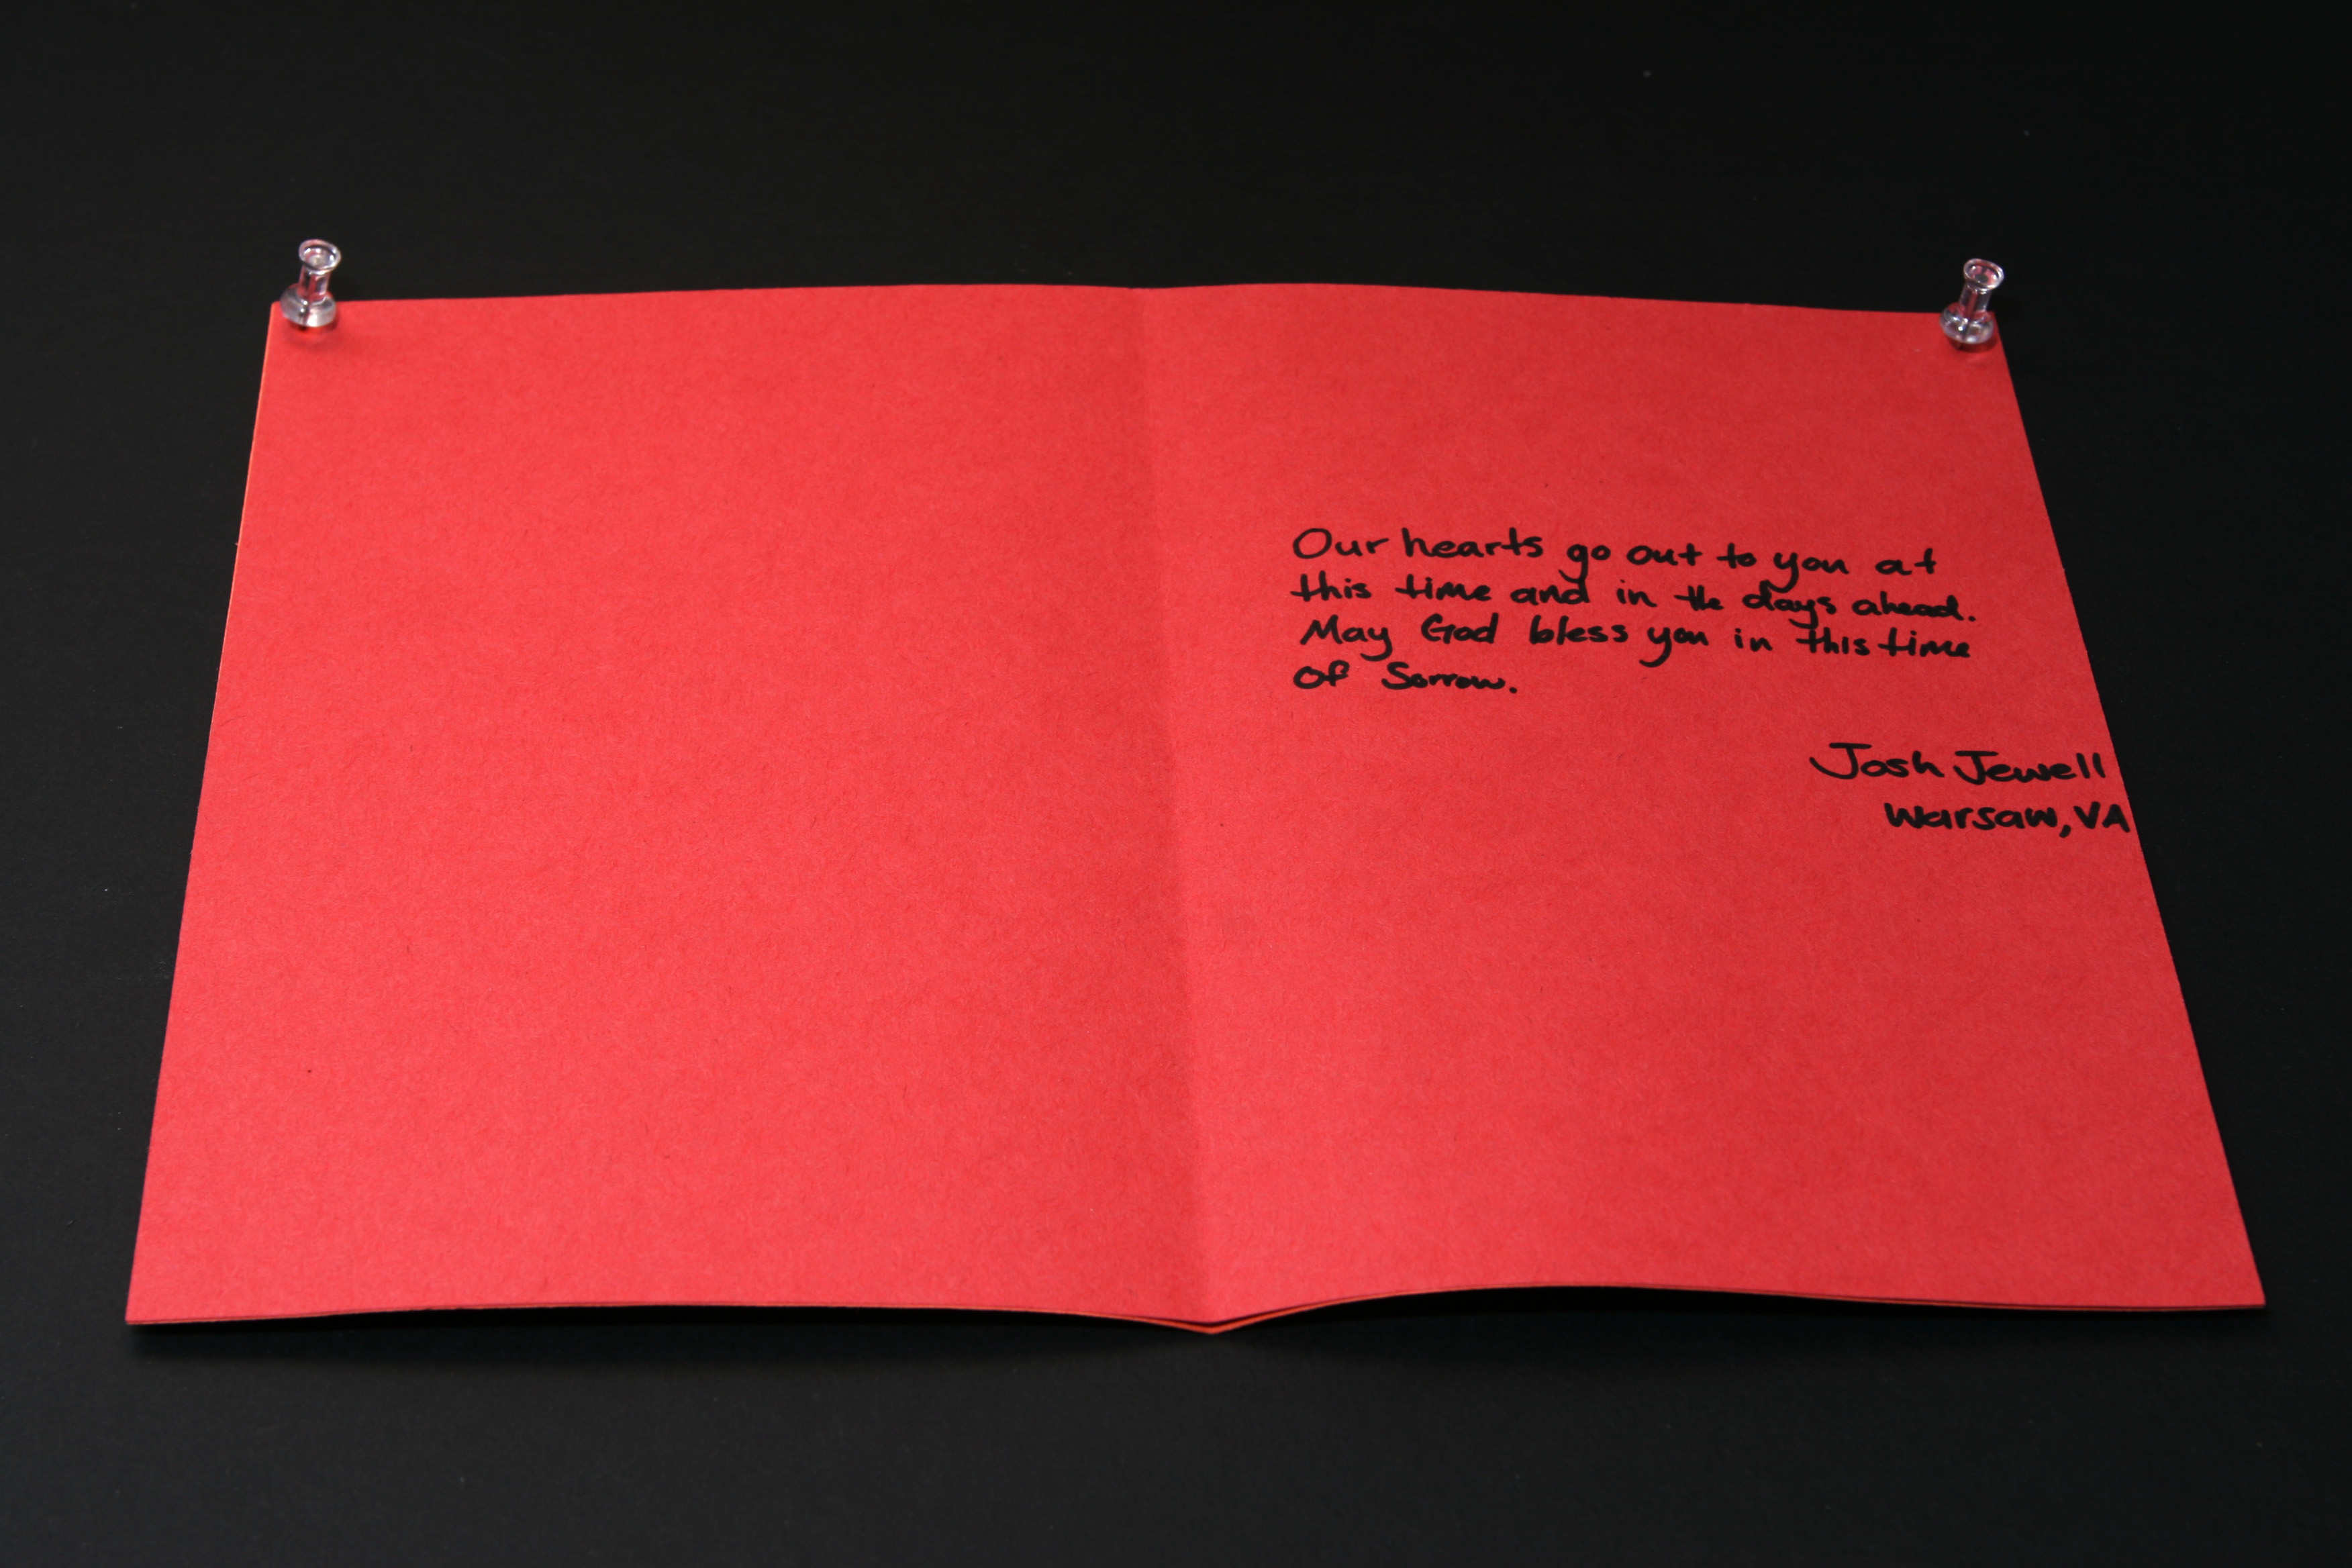 Our hearts go out to you at
this time and in the days ahead.
May God bless you in this time
of Sorrow.
Josh Jewell
Warsaw, VA